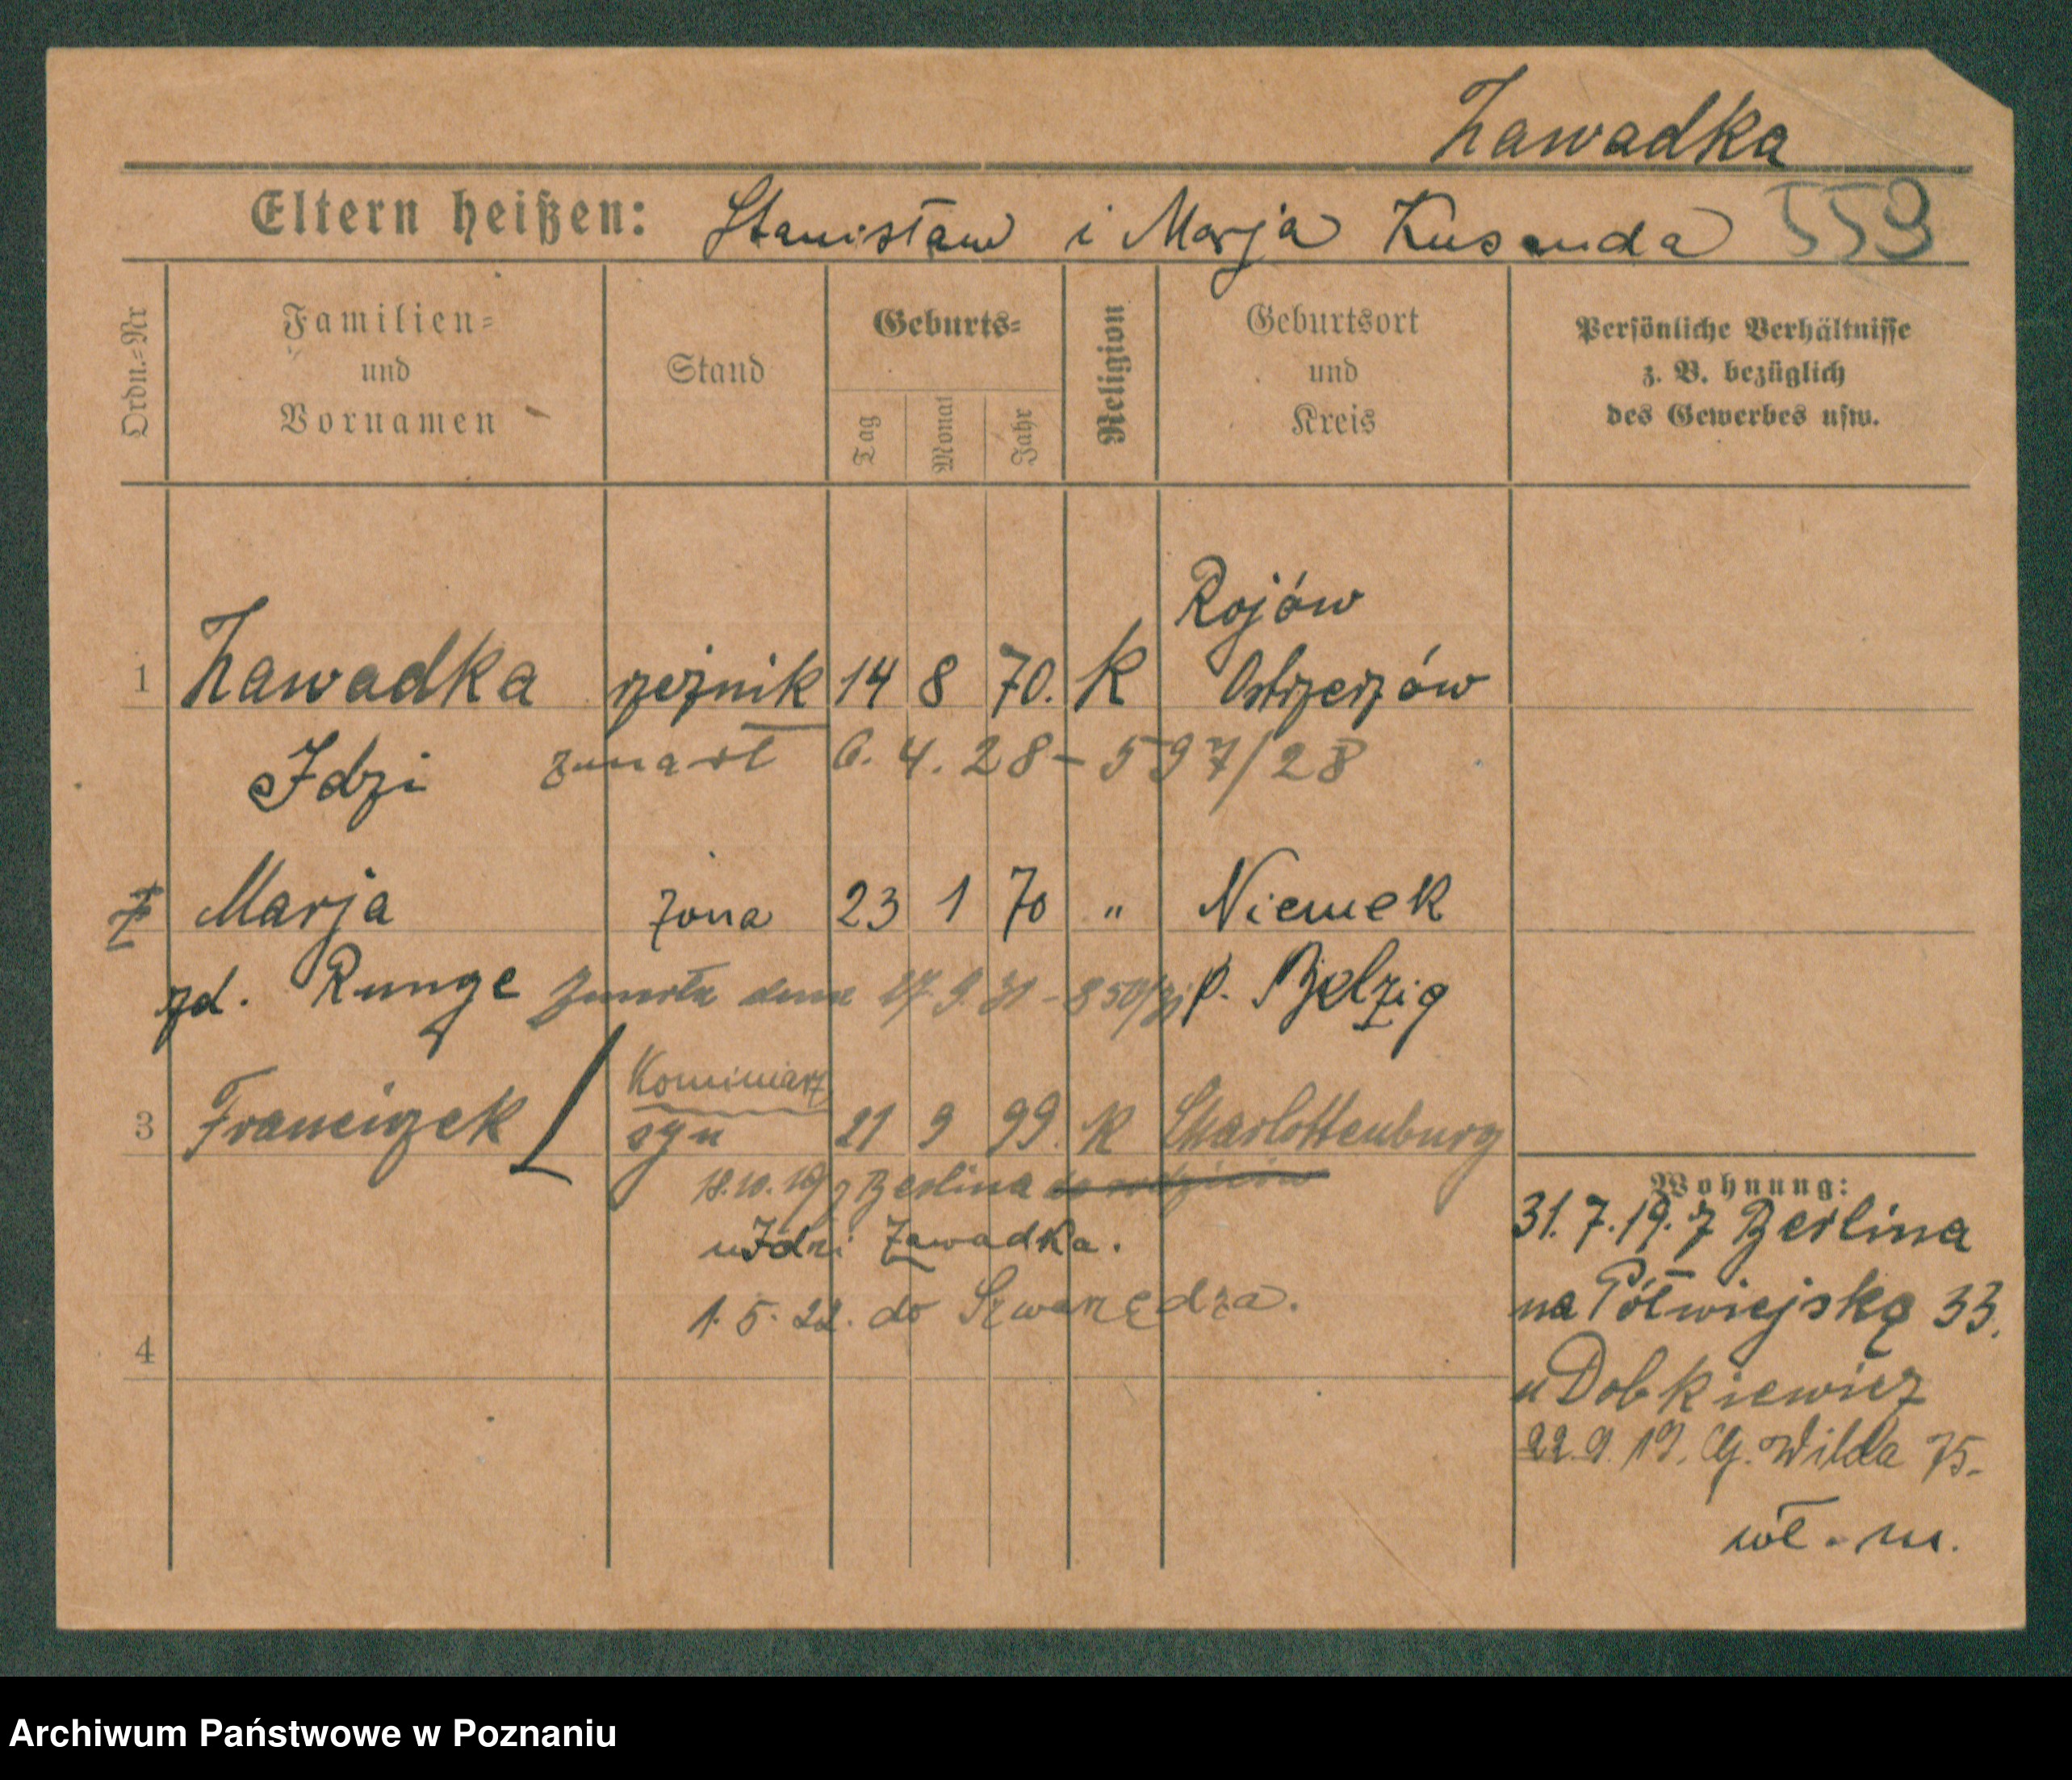 Zawadka
Eltern heißen: Stanisław i Marja Kusenda 559
Ordn.=Nr
Familien=
und
Vornamen
Stand
Geburts=
Tag
Monat
Jahr
Religion
Geburtsort
und
Kreis
Persönliche Verhältnisse
z. B. bezüglich
des Gewerbes usw.
Rojów
1 Zawadka rzeźnik 14 8 70. K Ostrzerzów
Idzi zmarł 6. 4. 28 – 597/28
Marja żona 23 1 70 " Niemek
zd. Runge zmarła dnia 27 9 31 – 850/31 p. Belzig
Kominiarz
3 Franciszek syn 21 9 99. K Charlottenburg
18.10.19 z Berlina do rodziców
u Idzi Zawadka.
1. 5. 22. do Szwarzędza.
4
Wohnung:
31. 7. 19. z Berlina
na Półwiejską 33.
u Dobkiewicz
22. 9. 19. G. Wilda 75.
wł. m.
Archiwum Państwowe w Poznaniu